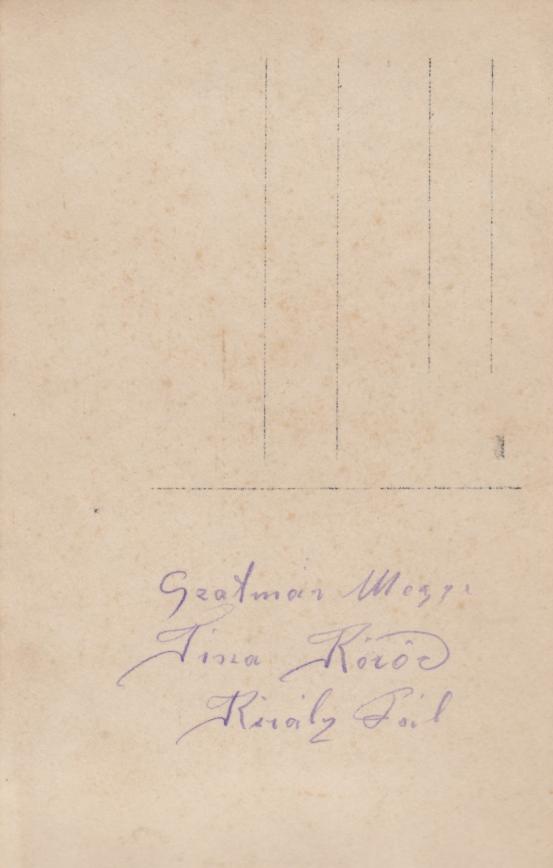 Szatmár Megye
Tisza Kóród
Király Pál